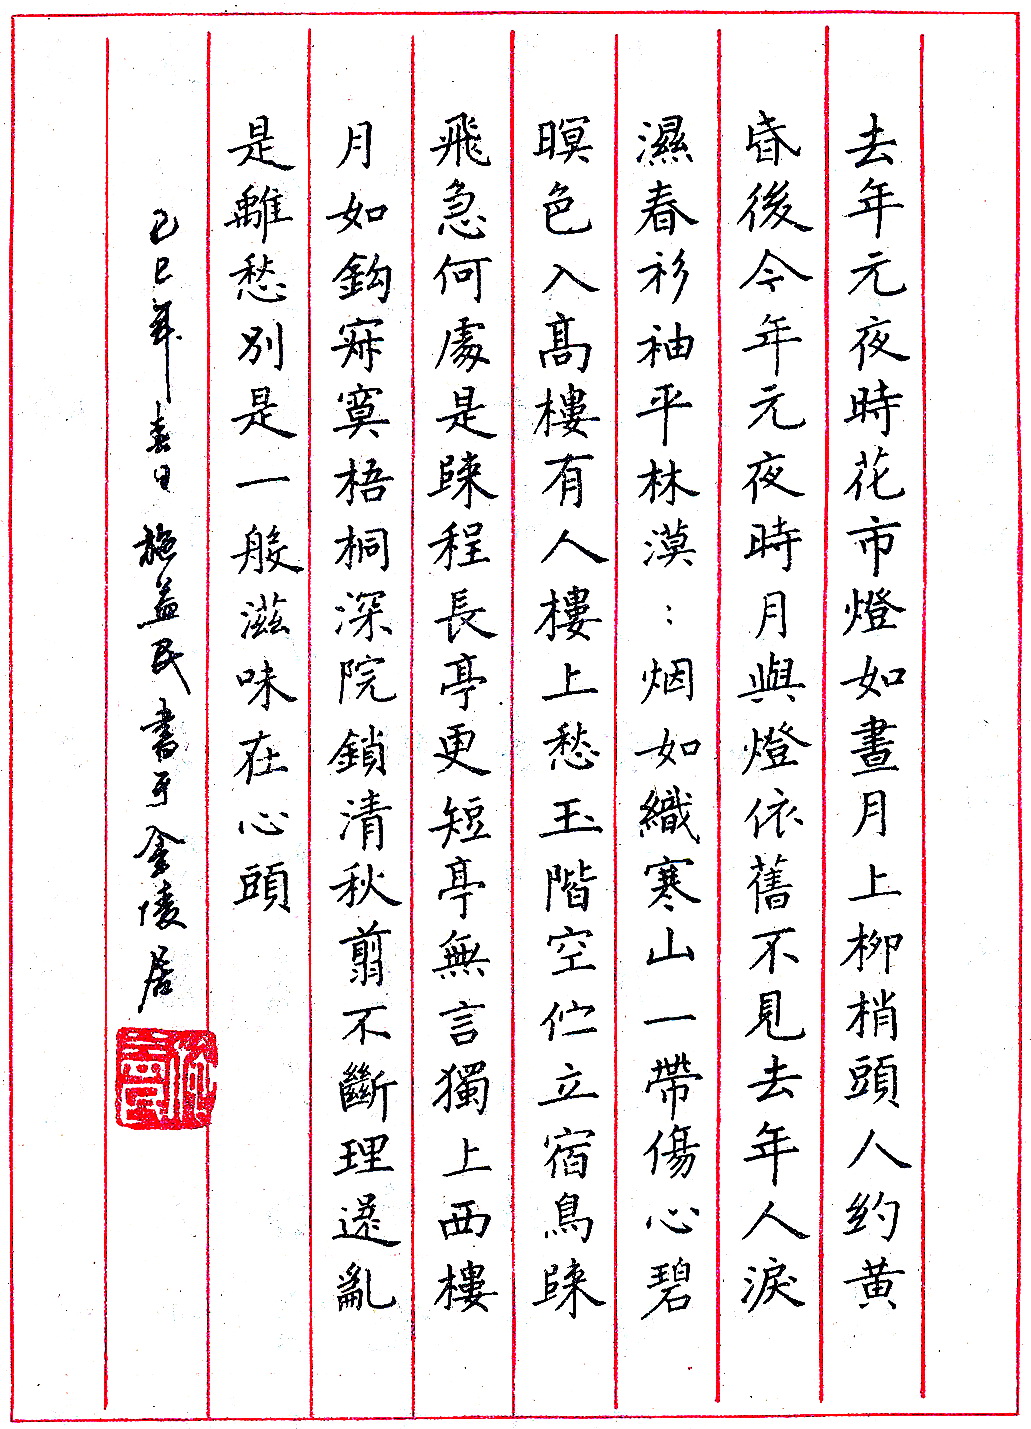 去年元夜時花市燈如晝月上柳梢頭人約黃
昏後今年元夜時月與燈依舊不見去年人淚
濕春衫袖平林漠：烟如織寒山一帶傷心碧
暝色入高樓有人樓上愁玉階空佇立宿鳥歸
飛急何處是歸程長亭更短亭無言獨上西樓
月如鈎寂寞梧桐深院鎖清秋剪不斷理還亂
是離愁別是一般滋味在心頭
己巳年春日施益民書于金陵居